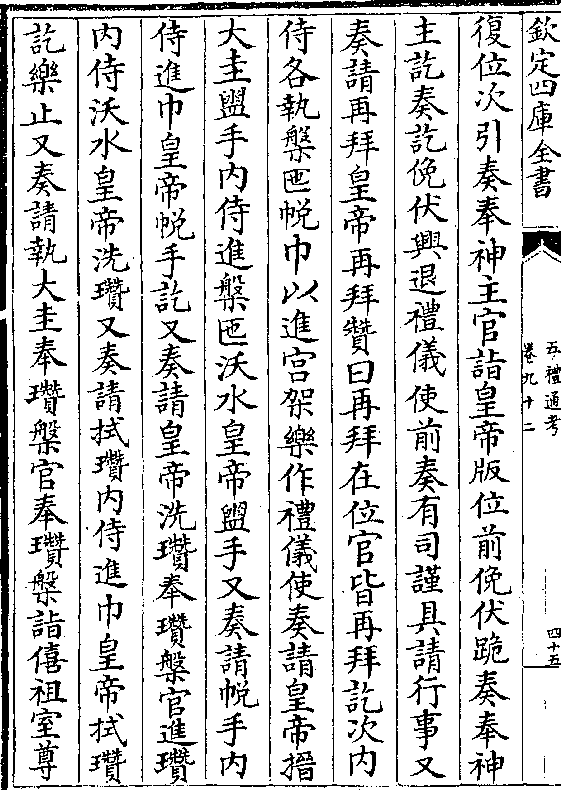 欽定四庫全書
五禮通考
卷九十二
四十五
復位次引奏奉神主官詣皇帝版位前俛伏跪奏奉神
主訖奏訖俛伏興退禮儀使前奏有司謹具請行事又
奏請再拜皇帝再拜贊曰再拜在位官皆再拜訖次内
侍各執槃匜帨巾以進宫架樂作禮儀使奏請皇帝搢
大圭盥手内侍進槃匜沃水皇帝盥手又奏請帨手内
侍進巾皇帝帨手訖又奏請皇帝洗瓚奉瓚槃官進瓚
内侍沃水皇帝洗瓚又奏請拭瓚内侍進巾皇帝拭瓚
訖樂止又奏請執大圭奉瓚槃官奉瓚槃詣僖祖室尊